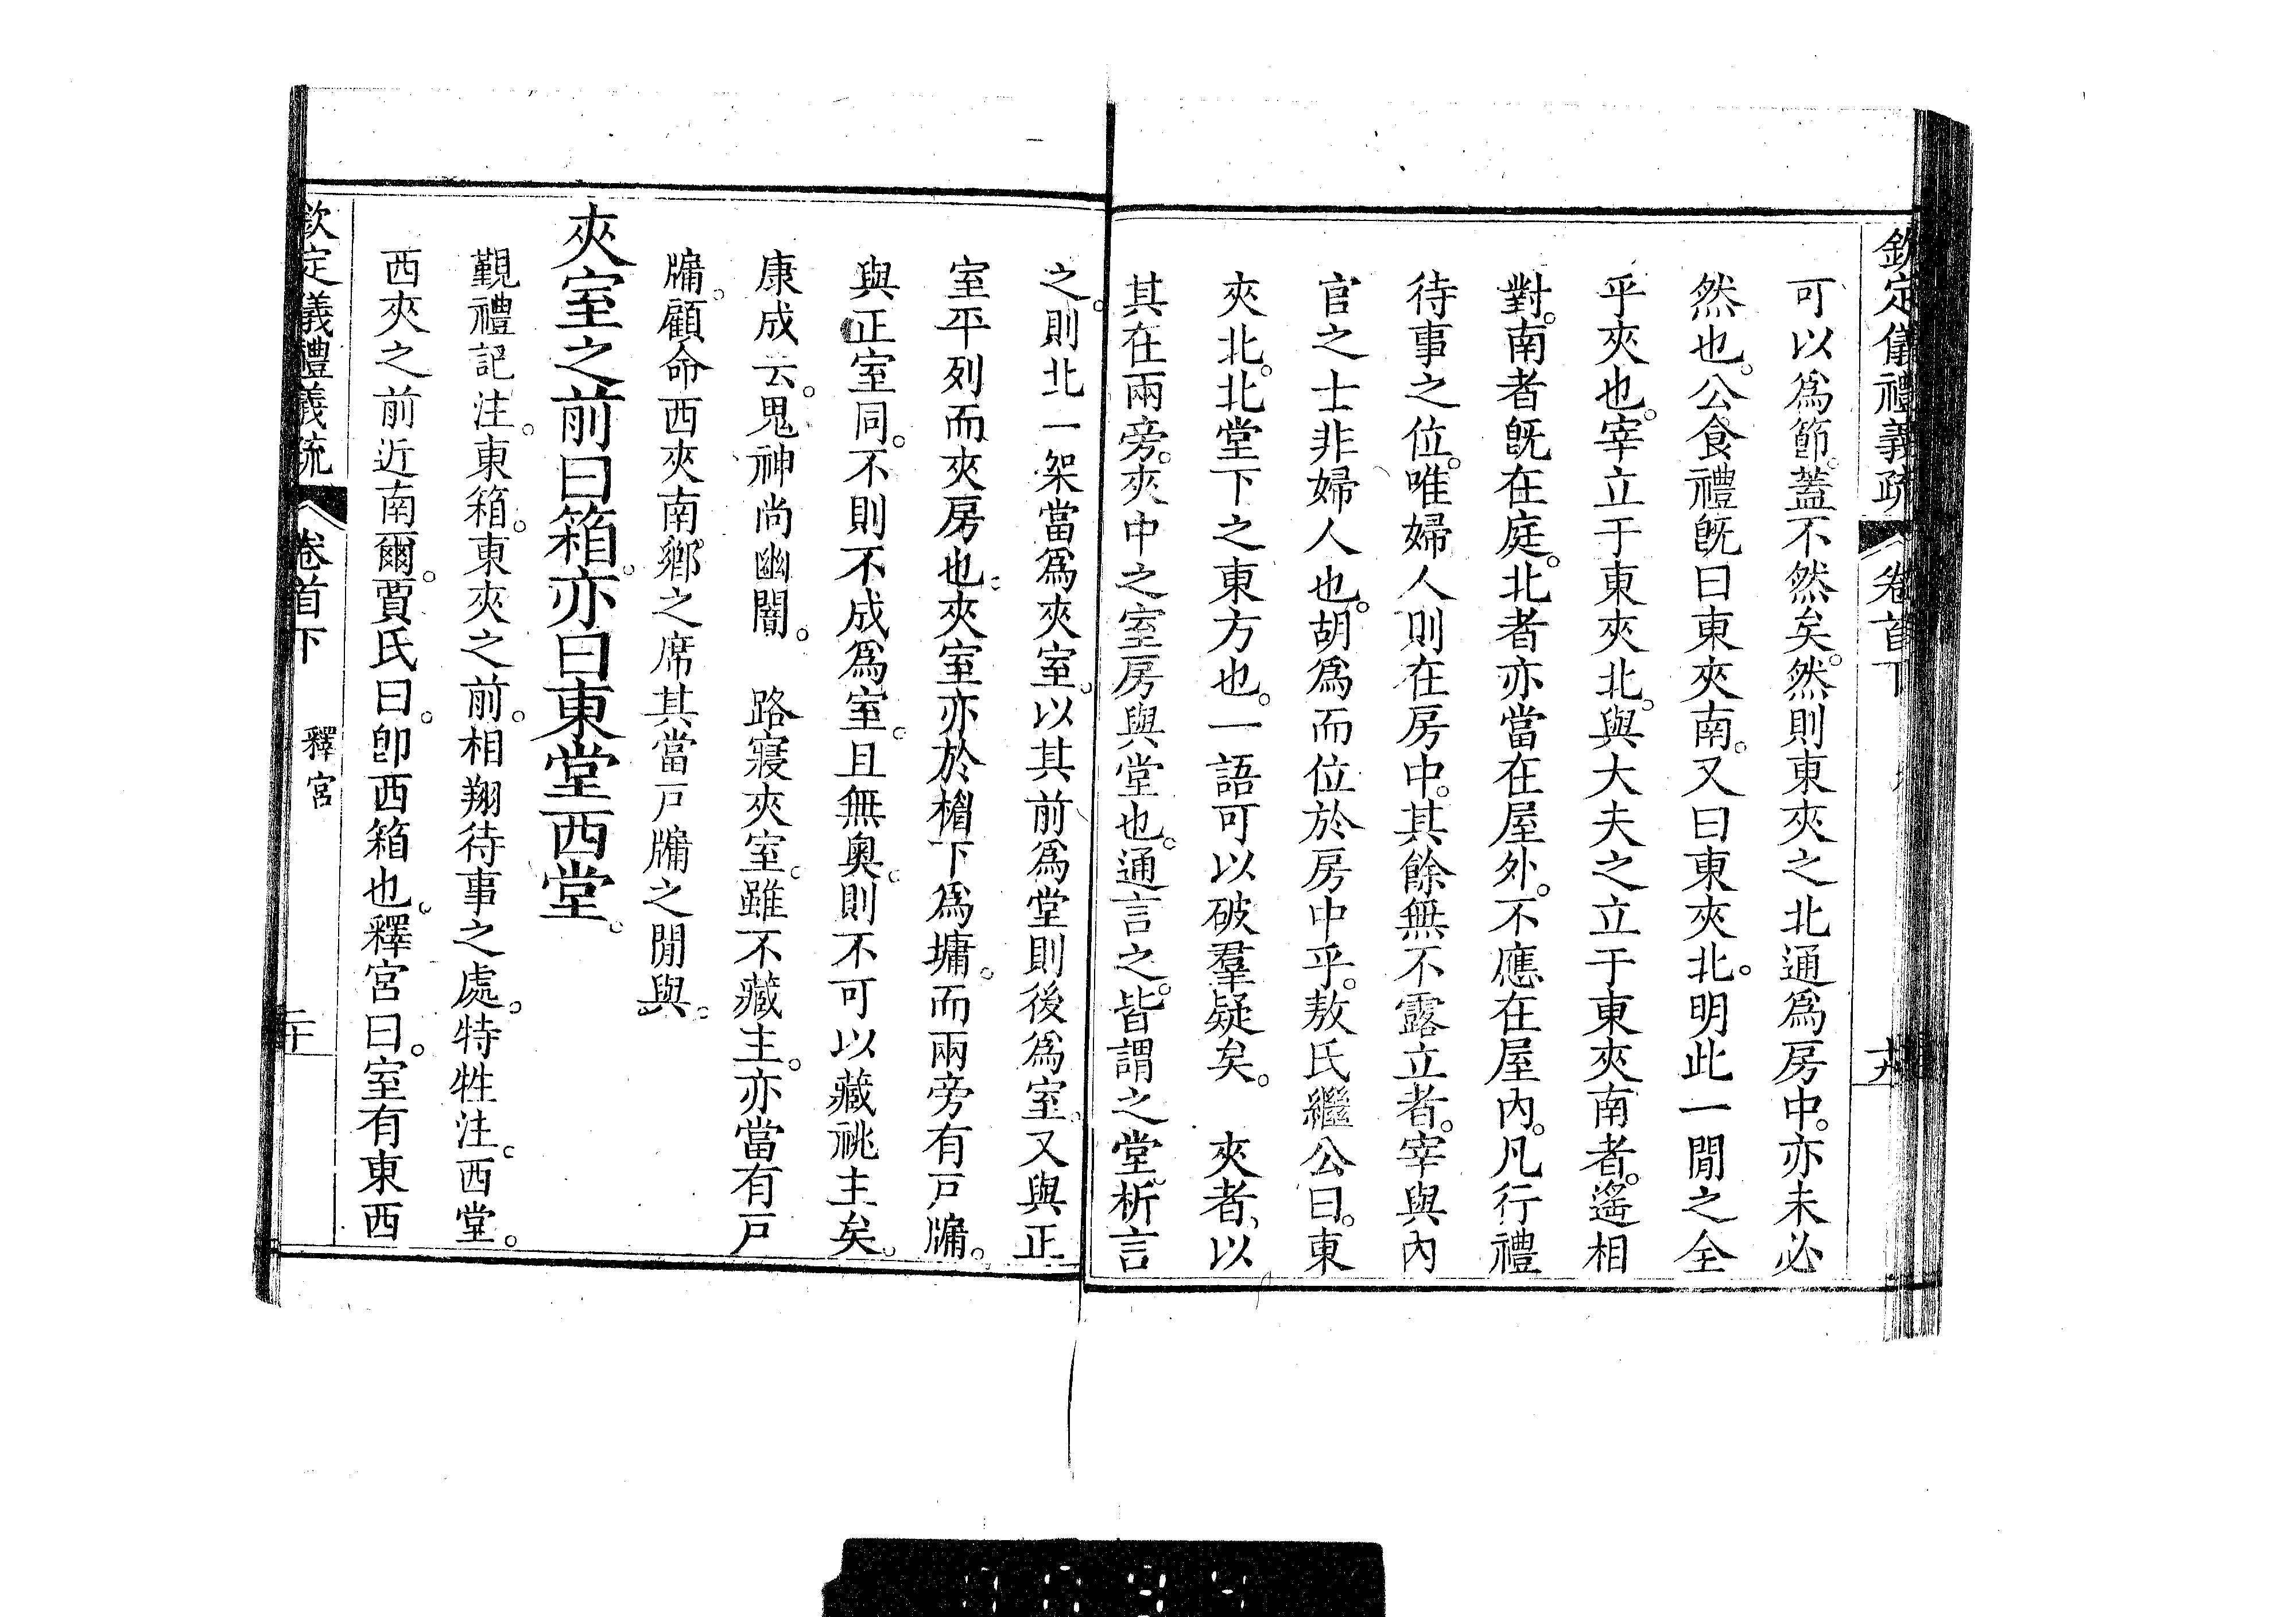 欽定儀禮義疏 卷首下 十九
可以爲節。蓋不然矣。然則東夾之北通爲房中。亦未必
然也。公食禮旣曰東夾南。又曰東夾北。明此一閒之全
乎夾也。宰立于東夾北。與大夫之立于東夾南者。遙相
對。南者旣在庭。北者亦當在屋外。不應在屋內。凡行禮
待事之位。唯婦人則在房中。其餘無不露立者。宰與內
官之士非婦人也。胡爲而位於房中乎。敖氏繼公曰。東
夾北。北堂下之東方也。一語可以破羣疑矣。 夾者、以
其在兩旁。夾中之室房與堂也。通言之。皆謂之堂。析言
之。則北一架當爲夾室。以其前爲堂則後爲室。又與正
室平列而夾房也。夾室亦於楣下爲墉。而兩旁有戶牖。
與正室同。不則不成爲室。且無奧。則不可以藏祧主矣。
康成云。鬼神尚幽闇。 路寢夾室。雖不藏主。亦當有戶
牖。顧命西夾南鄉之席其當戶牖之閒與。
夾室之前曰箱。亦曰東堂西堂。
覲禮記注。東箱。東夾之前。相翔待事之處。特牲注。西堂。
西夾之前近南爾。賈氏曰。卽西箱也。釋宮曰。室有東西
欽定儀禮義疏 卷首下 釋宮 二十